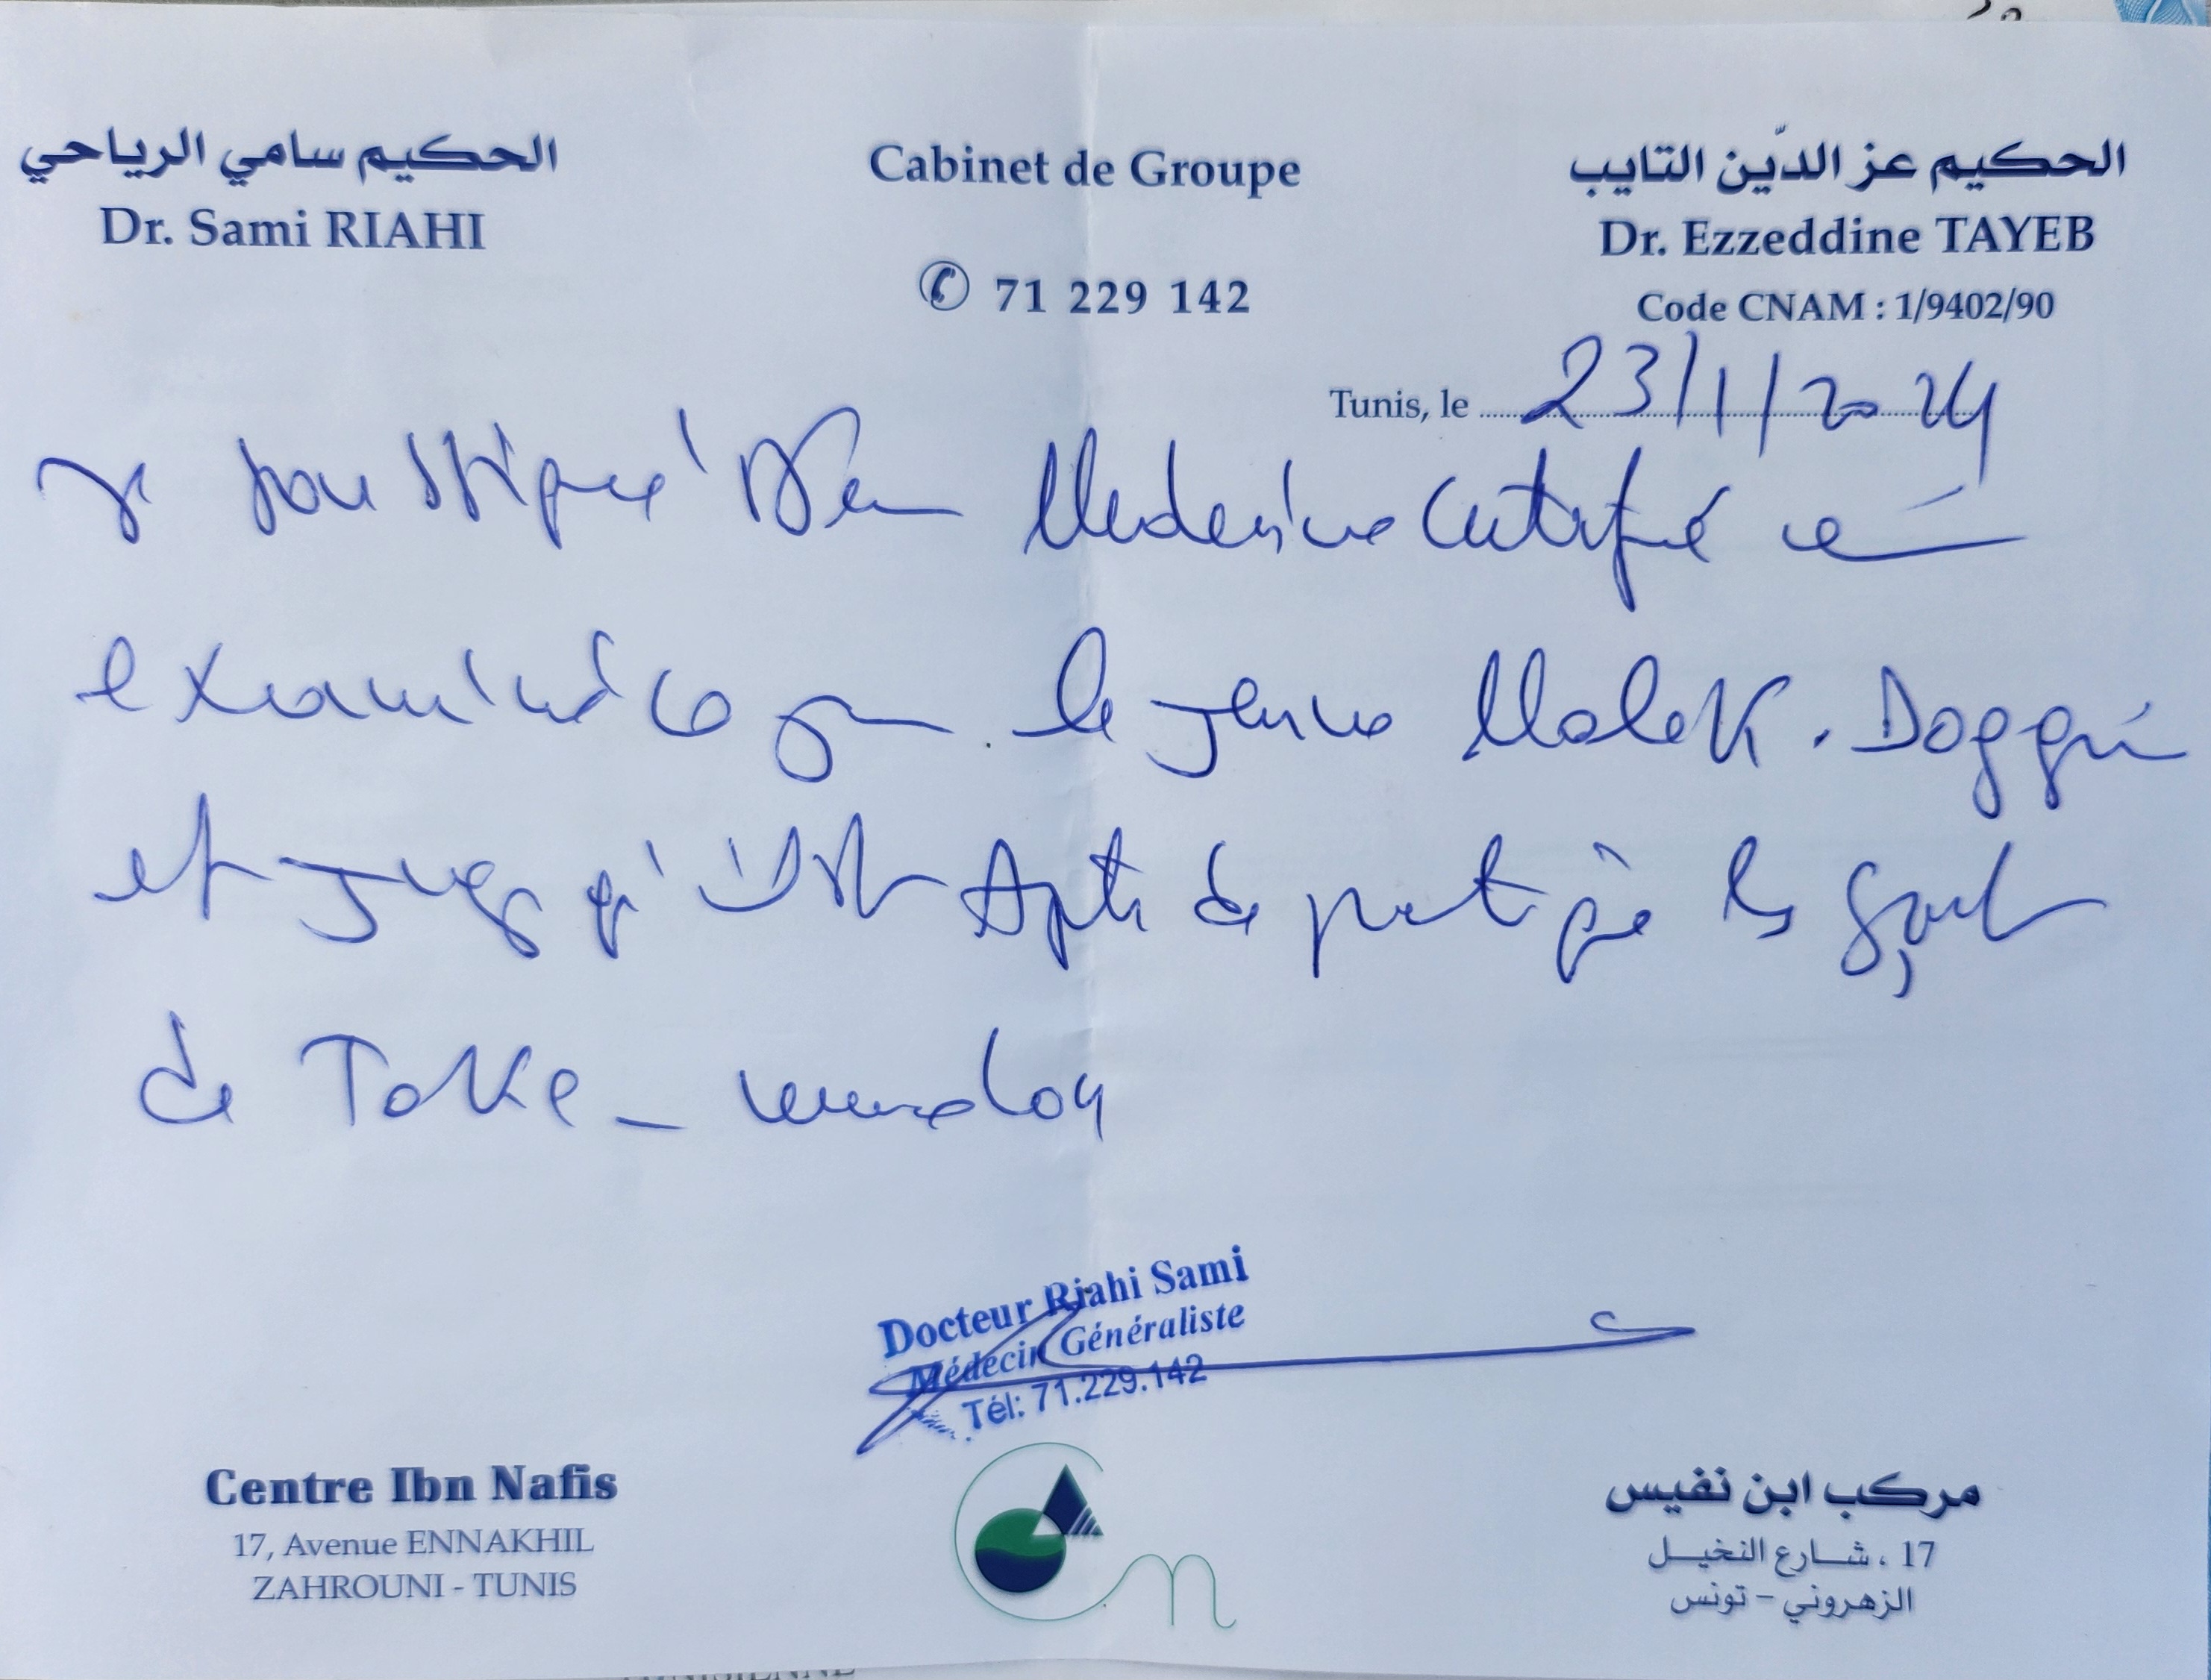 الحكيم سامي الرياحي
Dr. Sami RIAHI
Cabinet de Groupe
✆ 71 229 142
الحكيم عز الدّين التايب
Dr. Ezzeddine TAYEB
Code CNAM : 1/9402/90
Tunis, le 23/1/2024
Je soussigné Dr en Medecine Certifié
examiné ce jour le jeune Malek. Doggui
et juge qu'il est Apte de pratiquer le sport
de Toke_
Docteur Riahi Sami
Médecin Généraliste
Tél: 71.229.142
Centre Ibn Nafis
17, Avenue ENNAKHIL
ZAHROUNI - TUNIS
مركب ابن نفيس
17 ، شارع النخيل
الزهروني - تونس